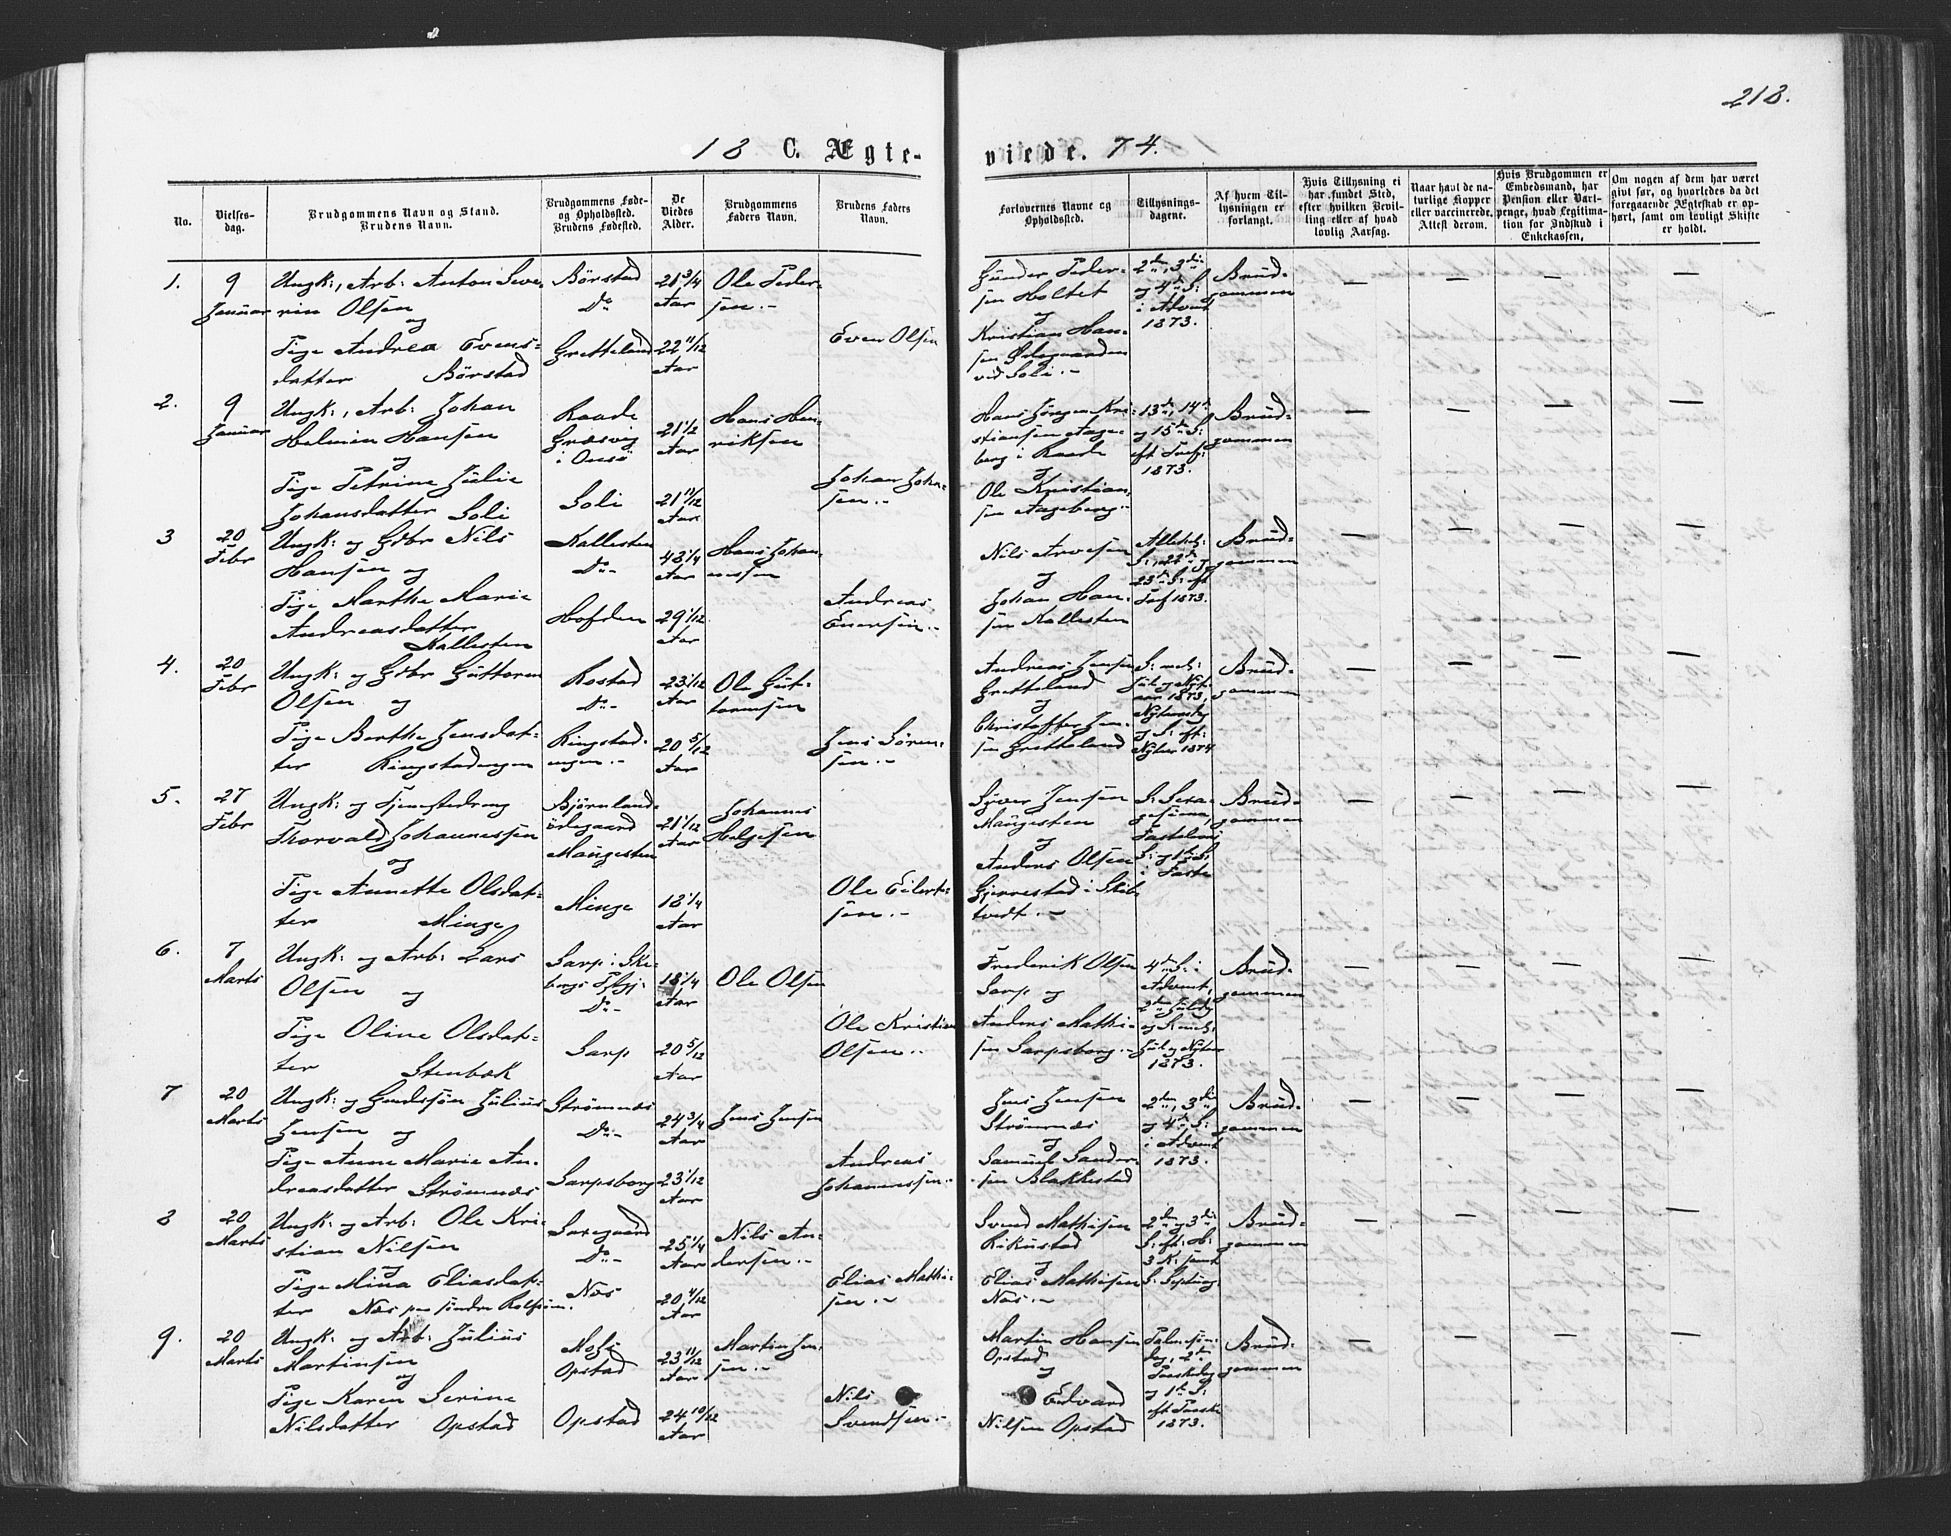 218.
18 C. Ægte-
viede. 74.
No.
Vielses-
dag.
Brudgommens Navn og Stand.
Brudens Navn.
Brudgommens Føde-
og Opholdssted.
Brudens Fødested.
De
Viedes
Alder.
Brudgommens
Faders Navn.
Brudens Faders
Navn.
Forlovernes Navne og
Opholdssted.
Tillysnings-
dagene.
Af hvem Til-
lysningen er
forlangt.
Hvis Tillysning ei
har fundet Sted,
efter hvilken Bevil-
ling eller af hvad
lovlig Aarsag.
Naar havt de na-
turlige Kopper
eller vaccinerede,
Attest derom.
Hvis Brudgommen er
Embedsmand, har
Pension eller Vart-
penge, hvad Legitima-
tion for Indskud i
Enkekassen.
Om nogen af dem har været
givt før, og hvorledes da det
foregaaende Ægteskab er op-
hørt, samt om lovligt Skifte
er holdt.
1.
9
Januar
Ungk:, Arb: Anton Seve-
rin Olsen
og
Pige Andrea Evens-
datter Börstad
Börstad
Do
Gretteland
21 3/4
Aar
22 11/12
Aar
Ole Peder-
sen.-
Even Olsen
Gunder Peder-
sen Holtet
og
Kristian Han-
sen Ödegaarden
ved Soli.-
2den, 3die
og 4de S:
i Advent
1873.
Brud-
gommen
2.
9
Januar
Ungk:, Arb: Johan
Helmin Hansen
og
Pige Petrine Julie
Johansdatter Soli
Raade
Græsvig
i Onsö
Soli
21 1/2
Aar
21 11/12
Aar
Hans Hen-
riksen
Johan Johan-
sen.-
Hans Jörgen Kri-
stiansen Aage-
berg i Raade
og
Ole Kristian-
sen Aageberg.-
13de, 14de
og 15de S:
eft Tref:
1873.
Brud-
gommen
3
20
Febr
Ungk: og Gdbr Nils
Hansen og
Pige Marthe Marie
Andreasdatter
Kallesten
Kallesten
Do.-
Hofden
43 1/4
Aar
29 1/12
Aar
Hans Johan-
nessen
Andreas
Enersen.-
Nils Arvesen
og
Johan Han-
sen Kallesten
Allehel:
S:, 22de og
23de S: eft
Tref 1873.
Brud-
gommen
4.
20
Febr
Ungk: og Gdbr Guttorm
Olsen og
Pige Berthe Jensdat-
ter Ringstadengen
Rostad
Do.-
Ringstad-
engen.-
23 1/12
Aar
20 5/12
Aar
Ole Gut-
tormsen
Jens Sören-
sen.-
Andreas Jensen
Gretteland
og
Christoffer Jen-
sen Gretteland
S: mel:
Jul og Nyt-
aar 1873,
Nytaarsdag
og S: eft:
Nytaar 1874
Brud-
gommen
5.
27
Febr
Ungk: og Tjenestedreng
Thorvald Johannessen
og
Pige Annette Olsdat-
ter Minge
Björnland-
ödegaard
Maugesten
Minge
21 1/12
Aar
18 1/4
Aar
Johannes
Helgesen
Ole Eilert-
sen.-
Syver Jensen
Maugesten
og
Anders Olsen
Gjennestad i Skib-
tvedt.-
S: Sexa-
gesima,
Fastelavns
S: og 1ste S:
i Faste
Brud-
gommen
6.
7
Marts
Ungk: og Arb: Lars
Olsen og
Pige Oline Olsdat-
ter Stenbæk
Sarp i Ske-
bergs Pgj:
Do.-
Sarp
18 1/4
Aar
20 5/12
Aar
Ole Olsen
Ole Kristian
Olsen.-
Frederik Olsen
Sarp og
Anders Mathi-
sen Sarpsborg.-
4de S: i
Advent,
2den Juledag
og S: mel:
Jul og Nytaar
1873.
Brud-
gommen
7
20
Marts
Ungk: og Gmdssön Julius
Jensen og
Pige Anne Marie An-
dreasdatter Strömnæs
Strömnæs
Do.-
Sarpsborg
24 3/4
Aar
23 1/12
Aar
Jens Jensen
Andreas
Johannessen.-
Jens Jensen
Strömnæs
og
Samuel Sander-
sen Blakkestad
2den, 3die
og 4de S:
i Advent
1873.
Brud-
gommen
8
20
Marts
Ungk: og Arb: Ole Kri-
stian Nilsen
og
Pige Mina Eliasdat-
ter Næs paa söndre Rolfsöen.
Soregaard
Do.-
Næs
25 1/4
Aar
20 4/12
Aar
Nils An-
dersen.-
Elias Mathi-
sen.-
Svend Mathisen
Rikustad
og
Elias Mathisen
Næs.-
2den og 3die
S: eft: H:
3 K: samt
S: Septuag:
Brud-
gommen
9.
20
Marts
Ungk: og Arb: Julius
Martinsen
og
Pige Karen Serine
Nilsdatter Opstad
Moss
Opstad
Opstad
23 11/12
Aar
24 10/12
Aar
Martin Jen-
sen.-
Nils
Svendsen.-
Martin Hansen
Opstad
og
Edvard
Nilsen Opstad
Palmesön-
dag, 2den
Paaskedag
og 1ste S:
eft Paaske
1873.
Brud-
gommen